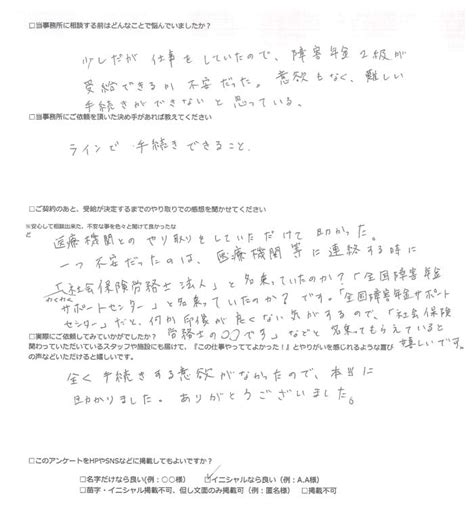 □当事務所に相談する前はどんなことで悩んでいましたか？
少しだが仕事をしていたので、障害年金2級が
受給できるか不安だった。意欲もなく、難しい
手続きができないと思っている。
□当事務所にご依頼を頂いた決め手があれば教えてください
ラインで手続きできること。
□ご契約のあと、受給が決定するまでのやり取りでの感想を聞かせてください
※安心して相談出来た、不安な事を色々と聞けて良かったな
ど
医療機関とのやり取りをしていただけて助かった。
一つ不安だったのは、医療機関等に連絡する時に
「社会保険労務士法人」と名乗っていたのか？「全国障害年金
サポートセンター」と名乗っていたのか？です。「全国障害年金サポート
センター」だと、何か印象が良くない気がするので、「社会保険
労務士の○○です」などと名乗ってもらえていると
嬉しいです。
□実際にご依頼してみていかがでしたか？
関わっていただいているスタッフや施設にも届けて、『この仕事やっててよかった！』とやりがいを感じれるような喜び
の声などいただけると嬉しいです。
全く手続きする意欲がなかったので、本当に
助かりました。ありがとうございました。
□このアンケートをHPやSNSなどに掲載してもよいですか？
□名字だけなら良い(例：○○様) ☑イニシャルなら良い（例：A.A様）
□苗字・イニシャル掲載不可、但し文面のみ掲載可（例：匿名様） □掲載不可